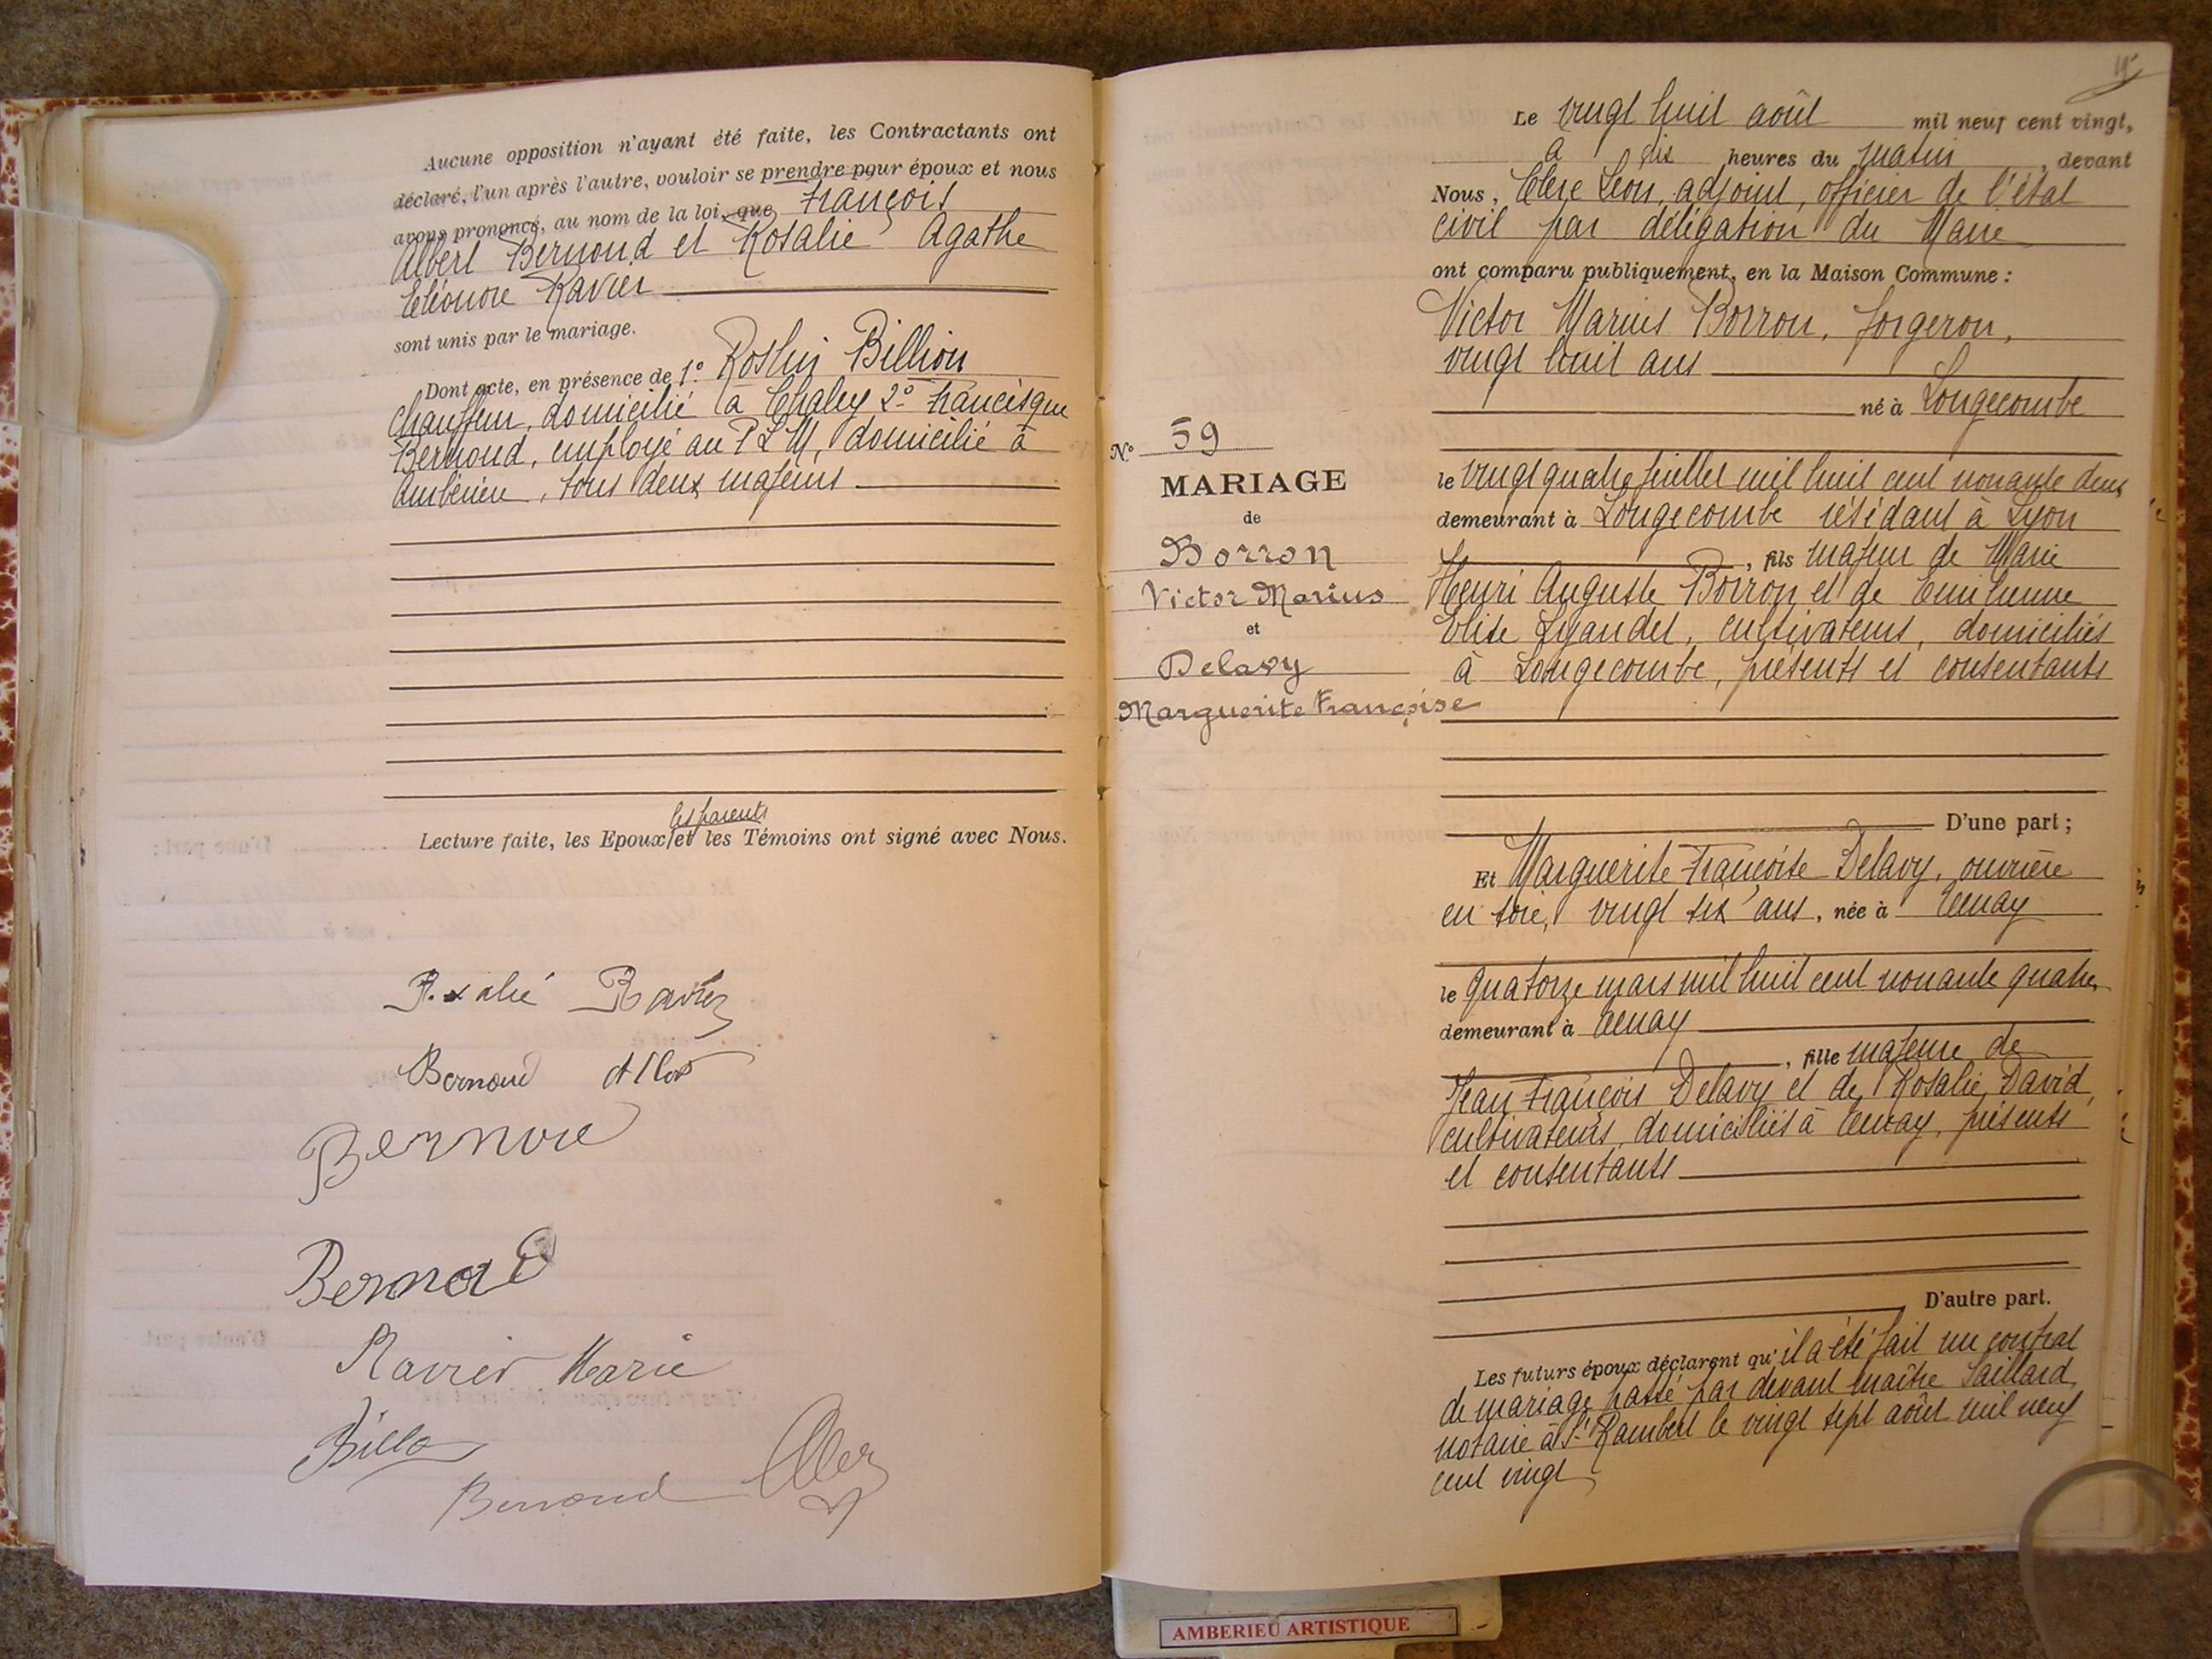 Aucune opposition n'ayant été faite, les Contractants ont
déclaré, l'un après l'autre, vouloir se prendre pour époux et nous
avons prononcé, au nom de la loi, que François
Albert Bernond et Rosalie Agathe
Eléonore Ravier
sont unis par le mariage.
Dont acte, en présence de 1º Roslin Billion
chauffeur, domicilié à Chaley 2º Francisque
Bernond, employé au P L M, domicilié à
Ambérieu, tous deux majeurs
les parents
Lecture faite, les Epoux et les Témoins ont signé avec Nous.
Rosalie Ravier
Bernond
Bernond
Ravier Marie
Bernond
Le vingt huit août mil neuf cent vingt,
à dix heures du matin, devant
Nous, Clerc Léon, adjoint, officier de l'état
civil par délégation du Maire
ont comparu publiquement, en la Maison Commune :
Victor Marius Borron, forgeron,
vingt huit ans
né à Longecombe
le vingt quatre juillet mil huit cent nonante deux
demeurant à Longecombe résidant à Lyon
, fils majeur de Marie
Henri Auguste Borron et de Emilienne
Elise Lyaudet, cultivateurs, domiciliés
à Longecombe, présents et consentants
Nº 59
MARIAGE
de
Borron
Victor Marius
et
Delavy
Marguerite Françoise
D'une part ;
Et Marguerite Françoise Delavy, ouvrière
en soie, vingt six ans, née à Tenay
le quatorze mars mil huit cent nonante quatre
demeurant à Tenay
, fille majeure de
Jean François Delavy et de Rosalie David,
cultivateurs, domiciliés à Tenay, présents
et consentants
D'autre part.
Les futurs époux déclarent qu'il a été fait un contrat
de mariage passé par devant maître Saillard,
notaire à St Rambert le vingt sept août mil neuf
cent vingt
AMBERIEU ARTISTIQUE